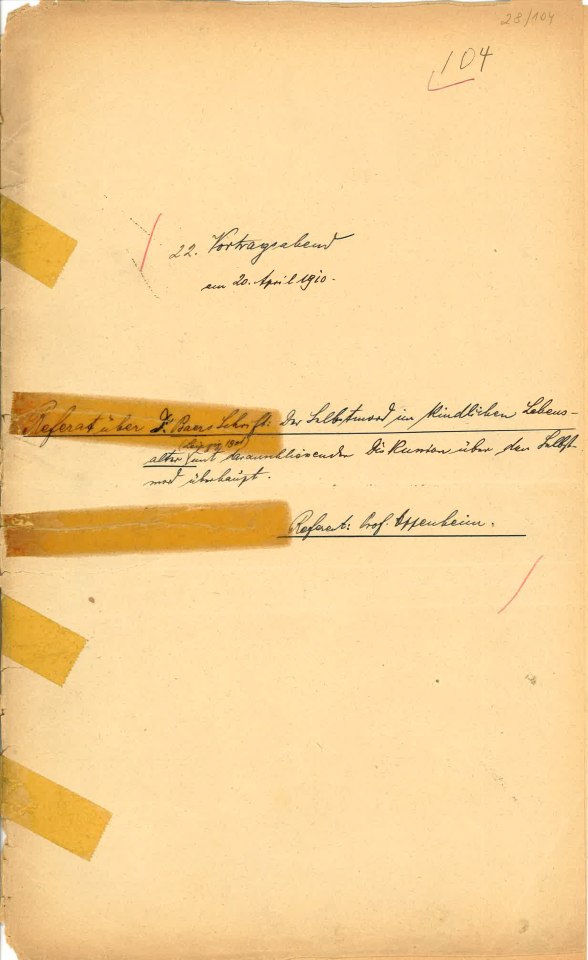 28/104
104
22. Vortragsabend
am 20. April 1910.
Referat über Baers Schrift: Der Selbstmord im kindlichen Lebens-
(Leipzig 1901)
alter mit daranschliessender Diskussion über den Selbst-
mord überhaupt.
Referent: Prof. Oppenheim.